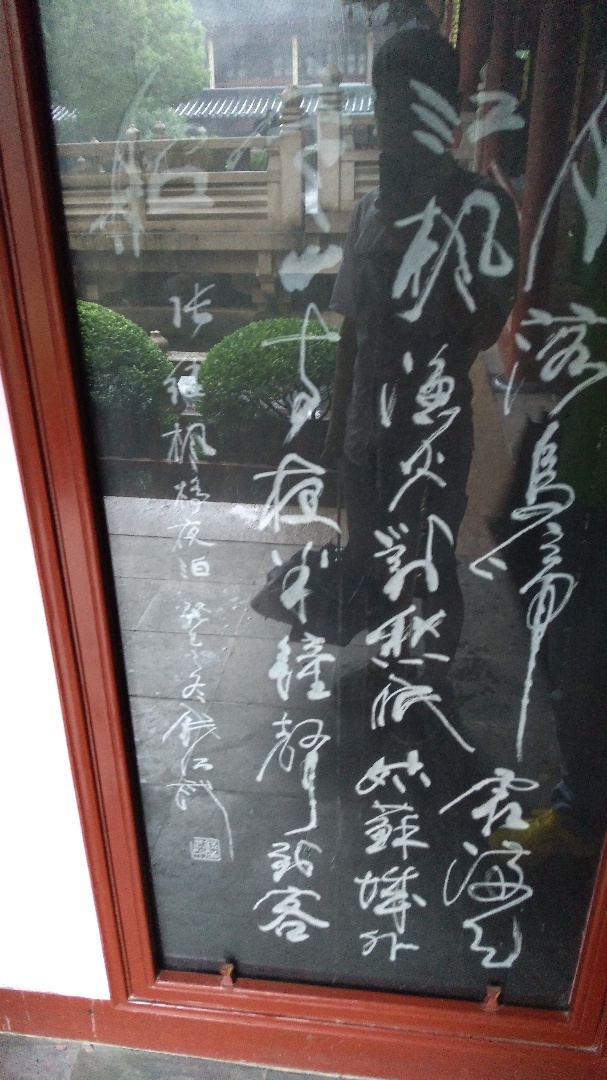 月落烏啼霜滿天
江楓漁火對愁眠姑蘇城外
寒山寺夜半鐘聲到客
船
张継楓橋夜泊 冬